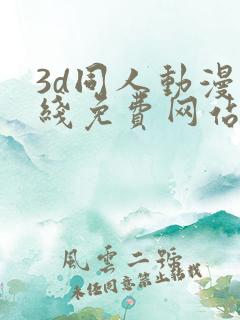 3d同人動漫
綫免費网站
風雲二號
未经同意禁止转载